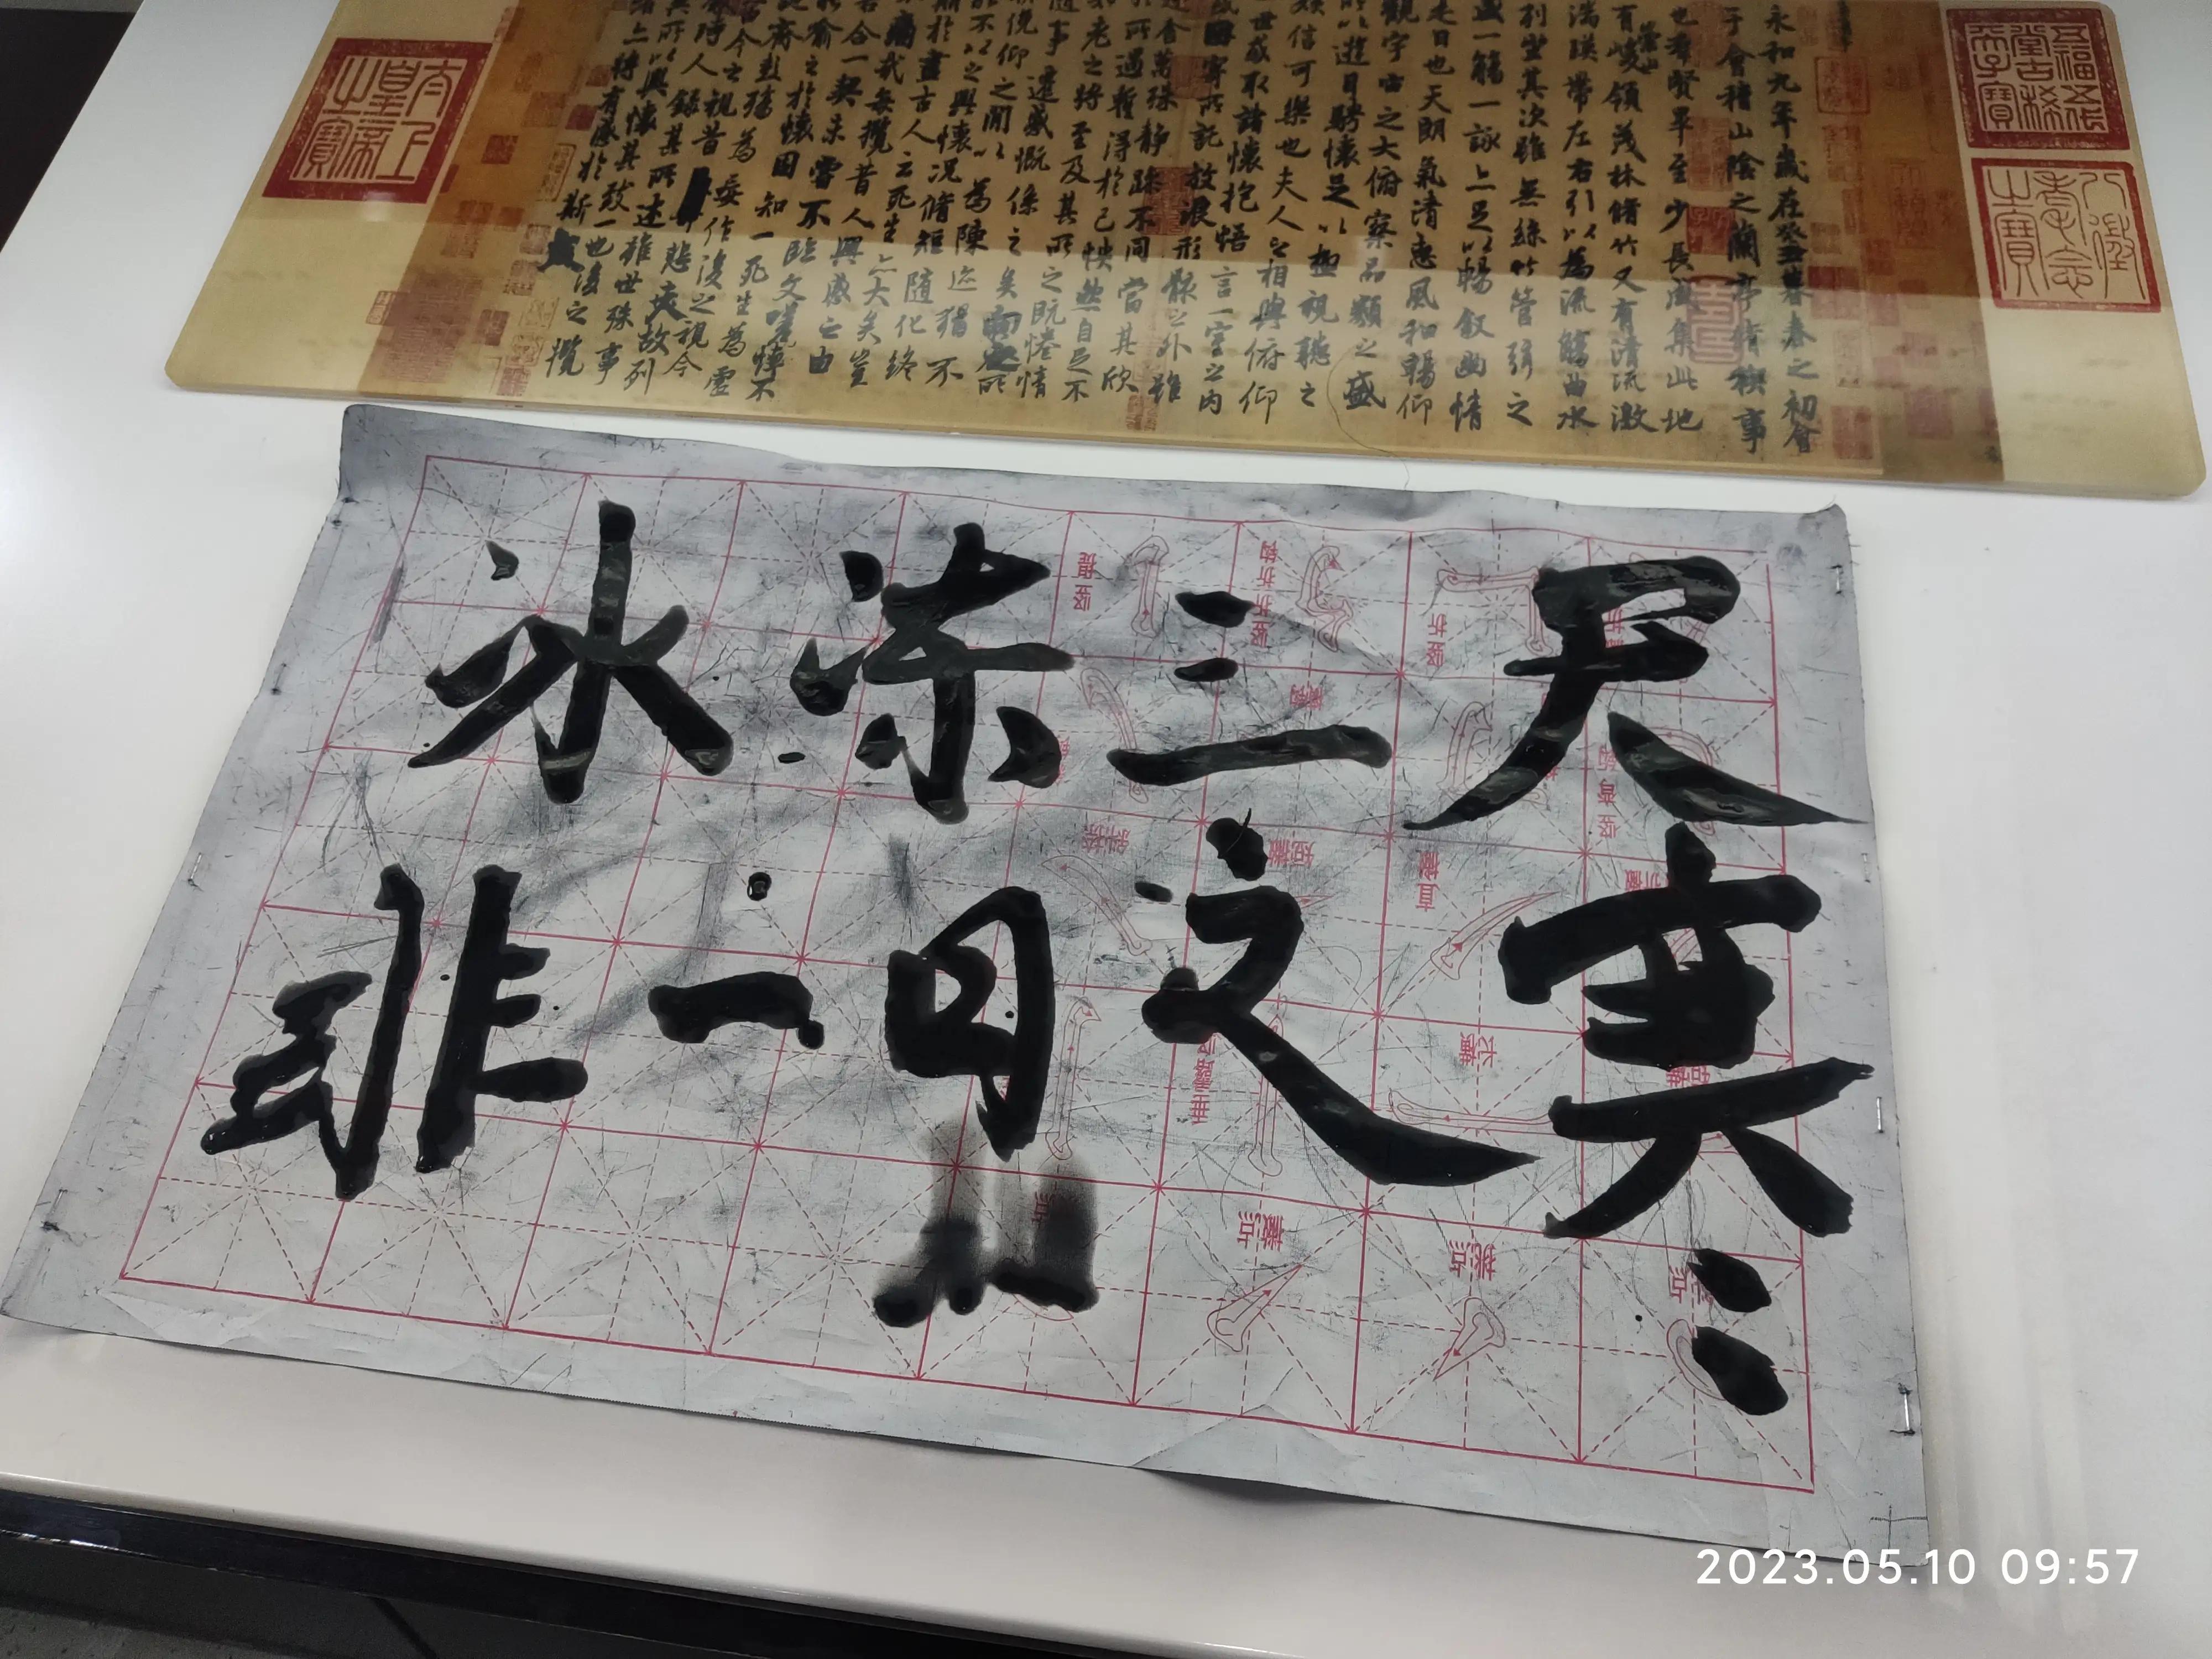 永和九年歲在癸丑暮春之初會
于會稽山陰之蘭亭脩稧事
也群賢畢至少長咸集此地
有崇山峻領茂林脩竹又有清流激
湍暎帶左右引以為流觴曲水
列坐其次雖無絲竹管弦之
盛一觴一詠亦足以暢叙幽情
是日也天朗氣清惠風和暢仰
觀宇宙之大俯察品類之盛
所以遊目騁懷足以極視聽之
娛信可樂也夫人之相與俯仰
一世或取諸懷抱悟言一室之內
或因寄所託放浪形骸之外雖
趣舍萬殊靜躁不同當其欣
於所遇暫得於己怏然自足不
老之將至及其所之既惓情
隨事遷感慨係之矣向之所
俛仰之閒以為陳迹猶不
能不以之興懷況脩短隨化終
期於盡古人云死生亦大矣豈
痛哉每攬昔人興感之由
若合一契未嘗不臨文嗟悼不
能喻之於懷固知一死生為虛
齊彭殤為妄作後之視今
今之視昔悲夫故列
時人錄其所述雖世殊事
異所以興懷其致一也後之攬
者亦將有感於斯文
太上皇帝之寶
五福五代堂古稀天子寶
八徵耄念之寶
冰冻三尺
非一日之寒
竖提
竖折折钩
竖折
斜捺
短撇
直撇
长横
垂露竖
撇点
挑点
2023.05.10 09:57